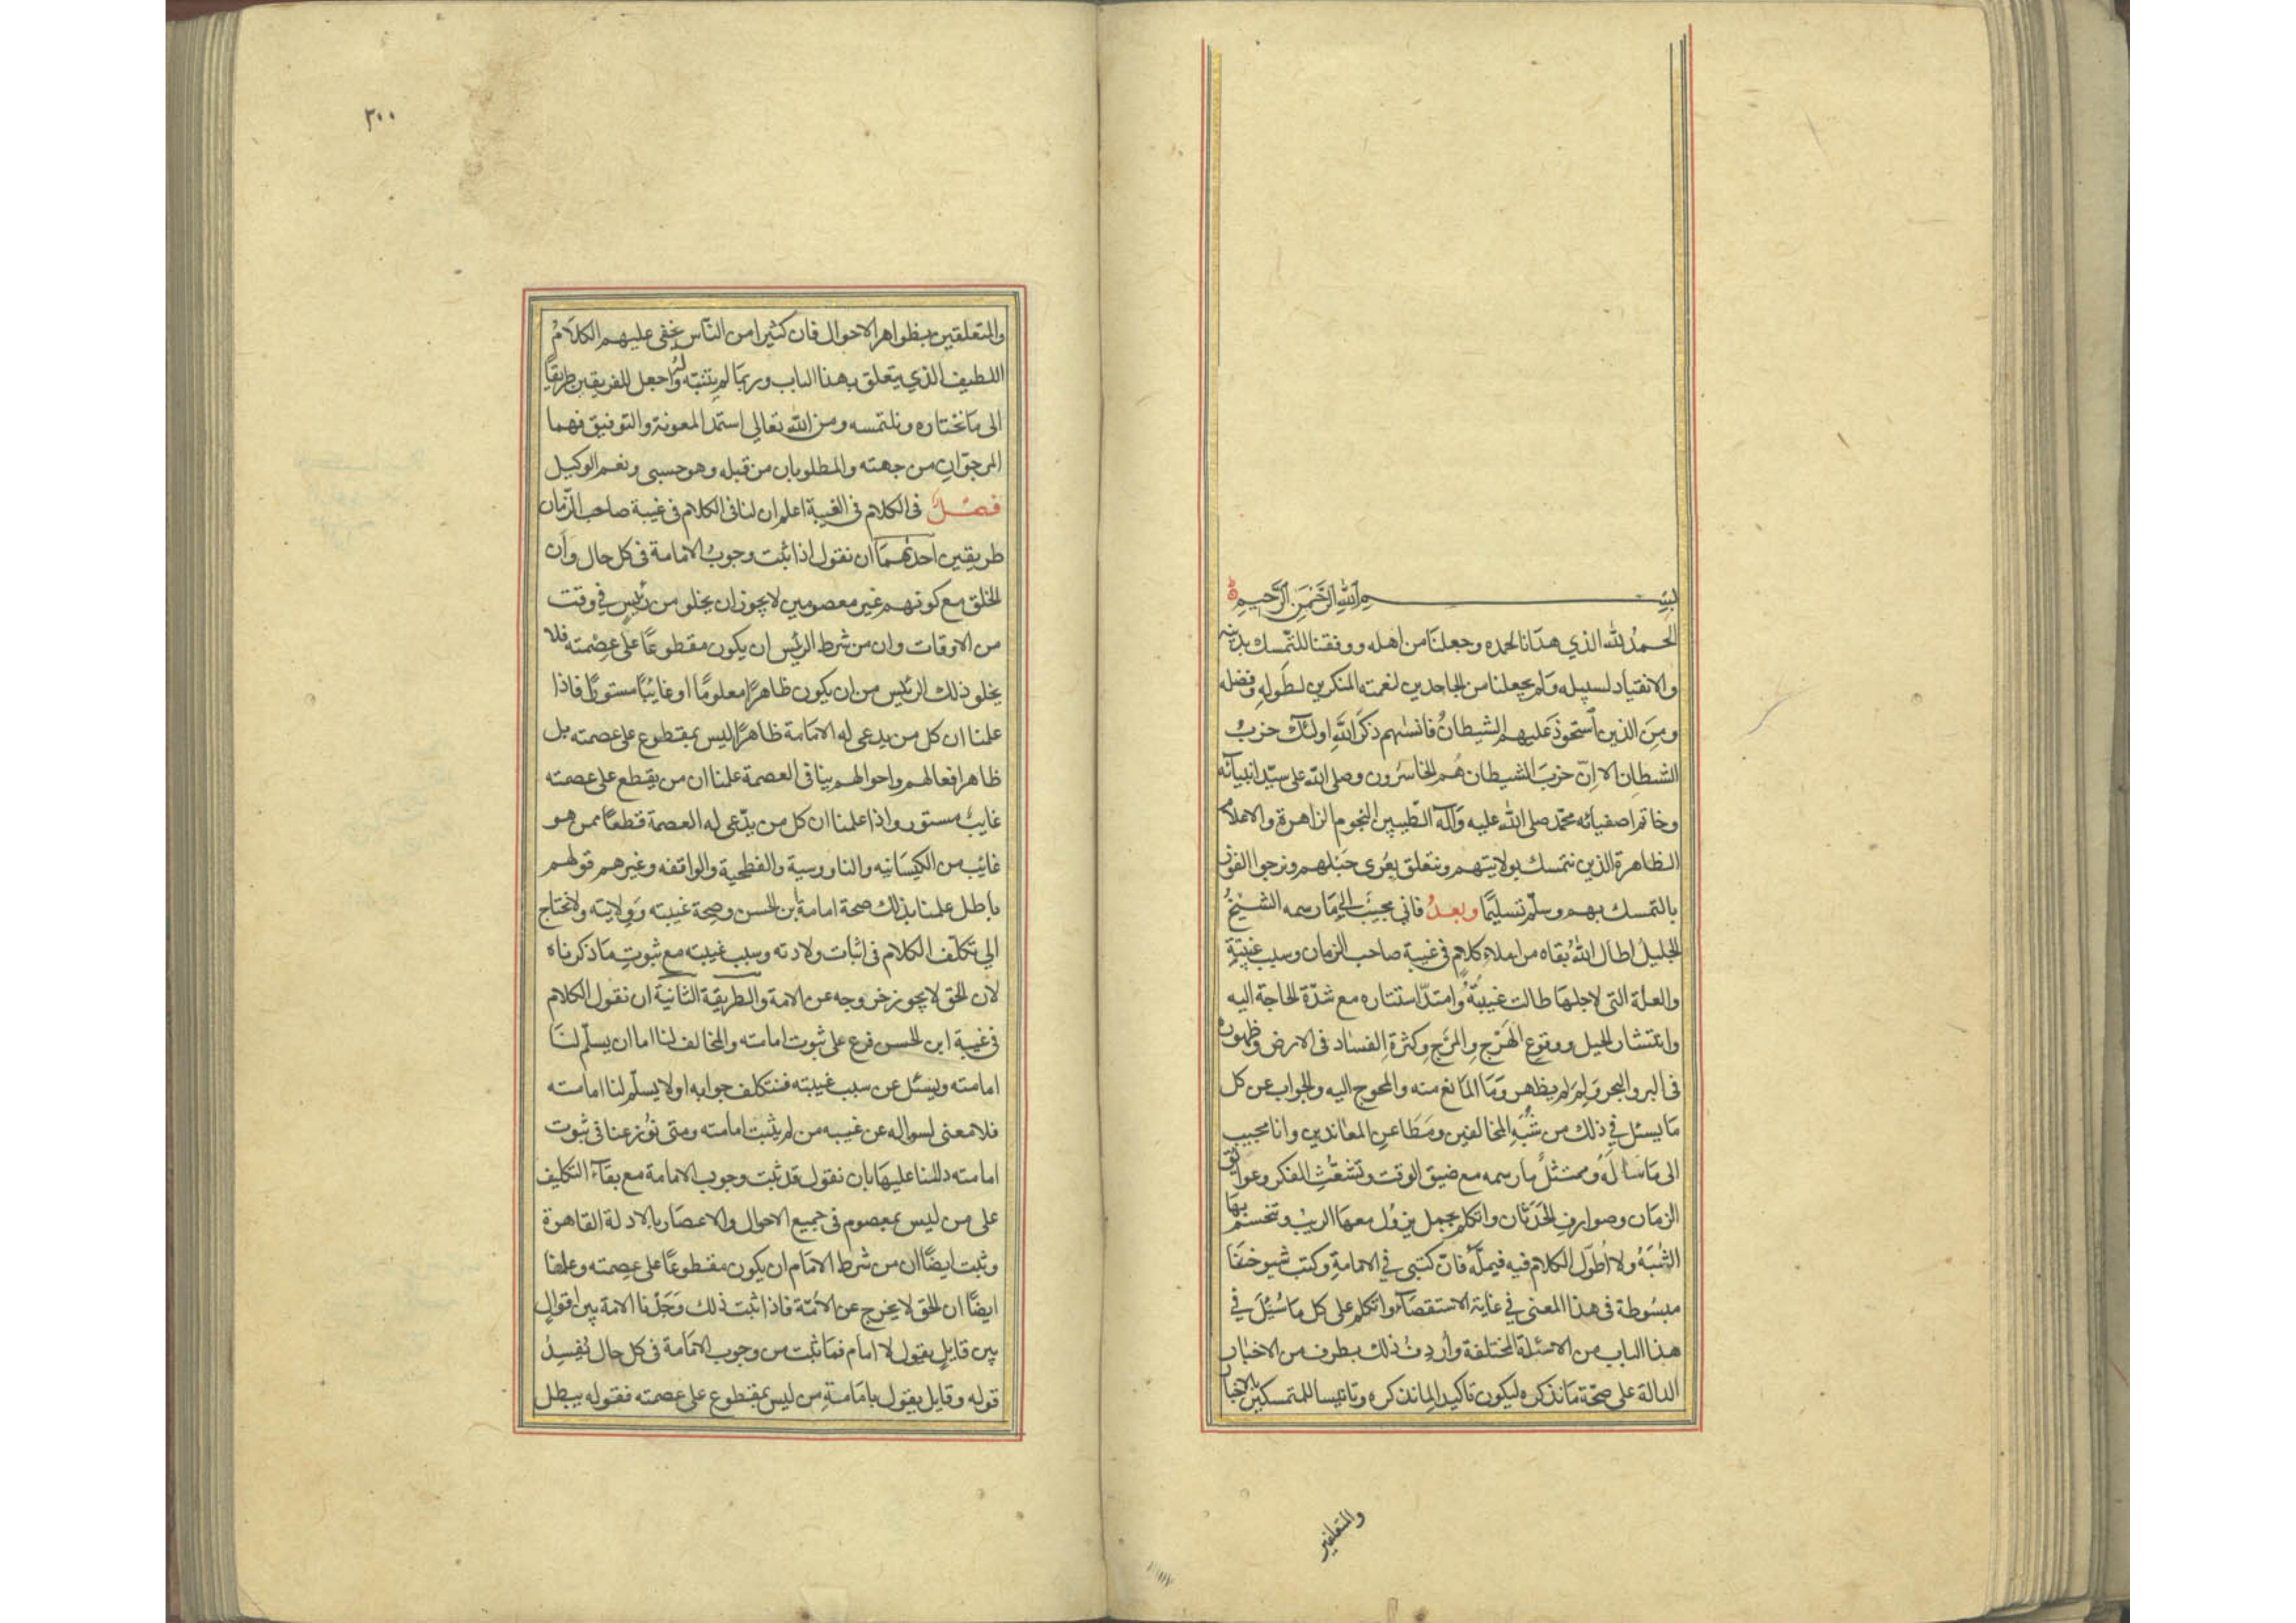 بسم الله الرَّحْمٰنِ الرَّحيمِ
الحمدُ لله الذي هدَانا لحمده وجعلنَا من اهله ووفقنا للتّمسك بدينه
والانقياد لسبيله وَلم يجعلنا من الجاحدين لنعمته المنكرين لطَولِهِ وفضله
ومِنَ الذين استحوذ عَليهم الشيطانُ فانسٰهم ذكرَ اللهِ اولئك حزبُ
الشيطانِ الا اِنّ حزبَ الشيطان هُم الخاسرُون وصلى الله على سيّد انبيائه
وخاتم اصفيائه محمّد صلى الله عليه وَآله الطّيبين النجوم الزاهرة والاعلام
الظاهرة الذين نتمسك بولايتهم ونتعلق بعُرى حَبلهم ونرجوا الفوز
بالتمسك بهم وسلّم تسليمًا وبعدُ فاني مجيبٌ الى مَا رسمه الشيخُ
الجليلُ اطال اللهُ بقاه من املاء كلامٍ في غيبة صاحب الزمان وسبب غيبتِهِ
والعلّة التى لاجلهَا طالت غيبتُهُ وامتدّ استتاره مع شدّة الحاجة اليه
وانتشار الحيل ووقوع الهَرْج والمرَج وكثرة الفسَاد فى الارض وظهوره
فى البر والبحر وَلِمَ لم يظهر وَمَا المانع منه والمحوج اليه والجواب عن كل
مَا يسئل في ذلك من شُبَهِ المخالفين ومَطَاعنِ المعَاندين وانا مجيب
الى مَا سَالَهُ وممتثلٌ ما رسمه مع ضيق الوقت وتشعّثِ الفكر وعوائق
الزمَان وصوارفِ الحَدَثان واتكلم بجمل يزول معهَا الريبُ وتنحسم بهَا
الشُبَهُ ولا اُطوّل الكلام فيه فيملَّه فانّ كتبى في الامامةِ وكتب شيوخنَا
مبسُوطة فى هذا المعنى في غاية الاستقصَآء واتكلم على كل مَا سُئِلَ في
هذا الباب من الاسئلة المختلفة واُردِفُ ذلك بطرف من الاخبار
الدالة على صحّة مَا نذكره ليكون تاكيدا لما نذكره وتانيسا للمتمسكين بالاخبار
والمتعلقين
٢٠٠
والمتعلقين بظواهر الاحوال فان كثيرا من النّاس يخفى عليهم الكلَامُ
اللطيف الذي يتعلق بهذا الباب وربّما لم يتثبّته واجعل للفريقين طريقًا
الى مَا نختاره ونلتمسه ومن الله تعالى استمدّ المعونة والتوفيق فهما
المرجوّانِ من جهته والمطلوبان من قبله وهو حسبى ونعم الوكيل
فصل فى الكلام فى الغيبة اعلم ان لنا فى الكلام فى غيبة صاحب الزّمان
طريقين احدُهمَا ان نقول اذا ثبت وجوبُ الامامة فى كل حال وأن
الخلق مع كونهم غير معصومين لا يجوز ان يخلو من رئيسٍ في وقت
من الاوقات وان من شرط الرئيس ان يكون مقطوعًا علَى عِصْمته فلا
يخلو ذلك الرئيس من ان يكون ظاهرًا معلومًا او غائبًا مستورًا فاذا
علمنا ان كل من يدعى له الامامة ظاهرًا ليس بمقطوع على عصمته بل
ظاهر افعالهم واحوالهم ينافى العصمة علمنا ان من يقطع على عصمته
غايبٌ مستور واذا علمنا ان كل من يدّعى له العصمة قطعًا ممن هو
غائب من الكيسَانيه والناووسية والفطحية والواقفه وغيرهم قولهم
باطل علمنا بذلك صحة امامة ابن الحسن وصِحة غيبته وَولايته ولا نحتاج
الي تكلّف الكلام فى اثبات ولادته وسبب غيبته مع ثبوتِ مَا ذكرناه
لان الحق لا يجوز خروجه عن الامة والطريقة الثانية ان نقول الكلام
فى غيبة ابن الحسن فرع على ثبوت امامته والمخالف لنا اما ان يسلّم لنَا
امامته ويسئل عن سبب غيبته فنتكلف جوابه او لا يسلّم لنا امامته
فلا معنى لسواله عن غيبه من لم يثبت امامته ومتى نُوزعنا فى ثبوت
امامته دللنا عليهَا بان نقول قد ثبت وجوب الامامة مع بقآء التكليف
على من ليس بمعصوم فى جميع الاحوال والاعصَار بالادلة القاهرة
وثبت ايضًا ان من شرط الامَام ان يكون مقطوعًا على عصمته وعلمنا
ايضًا ان الحق لا يخرج عن الأمّة فاذا ثبت ذلك وَجَدْنا الامة بين اقوالٍ
بين قايلٍ يقول لا امام فما ثبت من وجوب الامَامة فى كل حال يُفسِدُ
قوله وقايل يقول بامَامةِ من ليس بمقطوع على عصمته فقوله يبطل